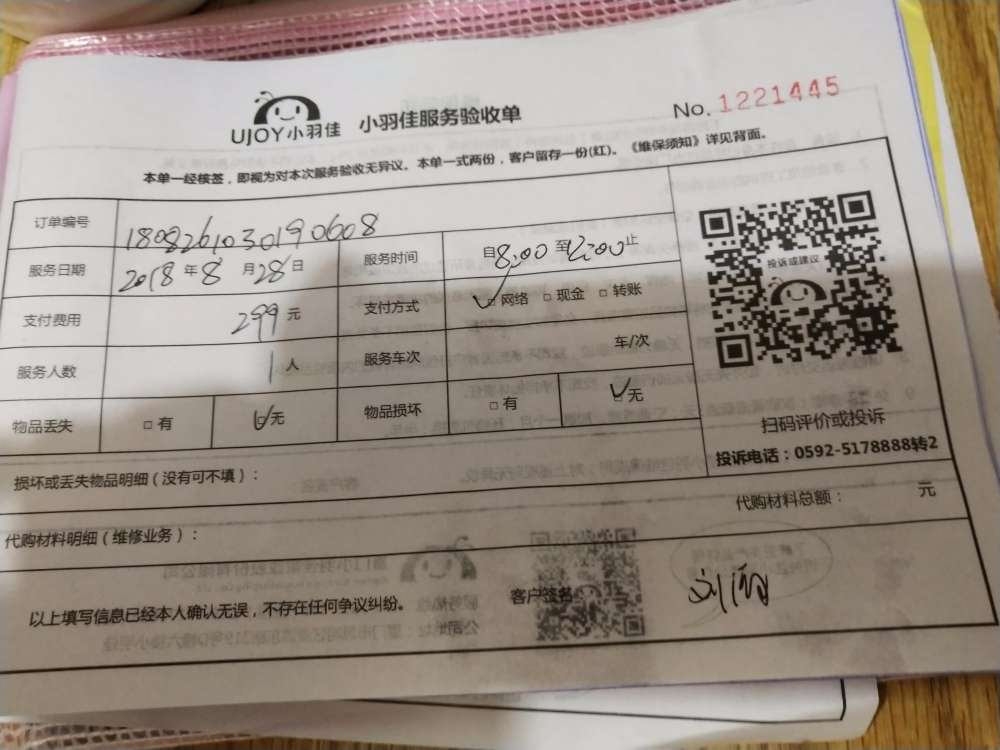 UJOY小羽佳 小羽佳服务验收单 No. 1221445
本单一经核签，即视为对本次服务验收无异议。本单一式两份，客户留存一份(红)。《维保须知》详见背面。
订单编号 1808261030190608
服务日期 2018 年 8 月 28 日 服务时间 自8:00 至12:00止
支付费用 299 元 支付方式 ☑网络 □现金 □转账
服务人数 1 人 服务车次 车/次
物品丢失 □有 ☑无 物品损坏 □有 ☑无
投诉或建议
扫码评价或投诉
投诉电话：0592-5178888转2
损坏或丢失物品明细（没有可不填）：
代购材料明细（维修业务）： 代购材料总额： 元
以上填写信息已经本人确认无误，不存在任何争议纠纷。 客户签名